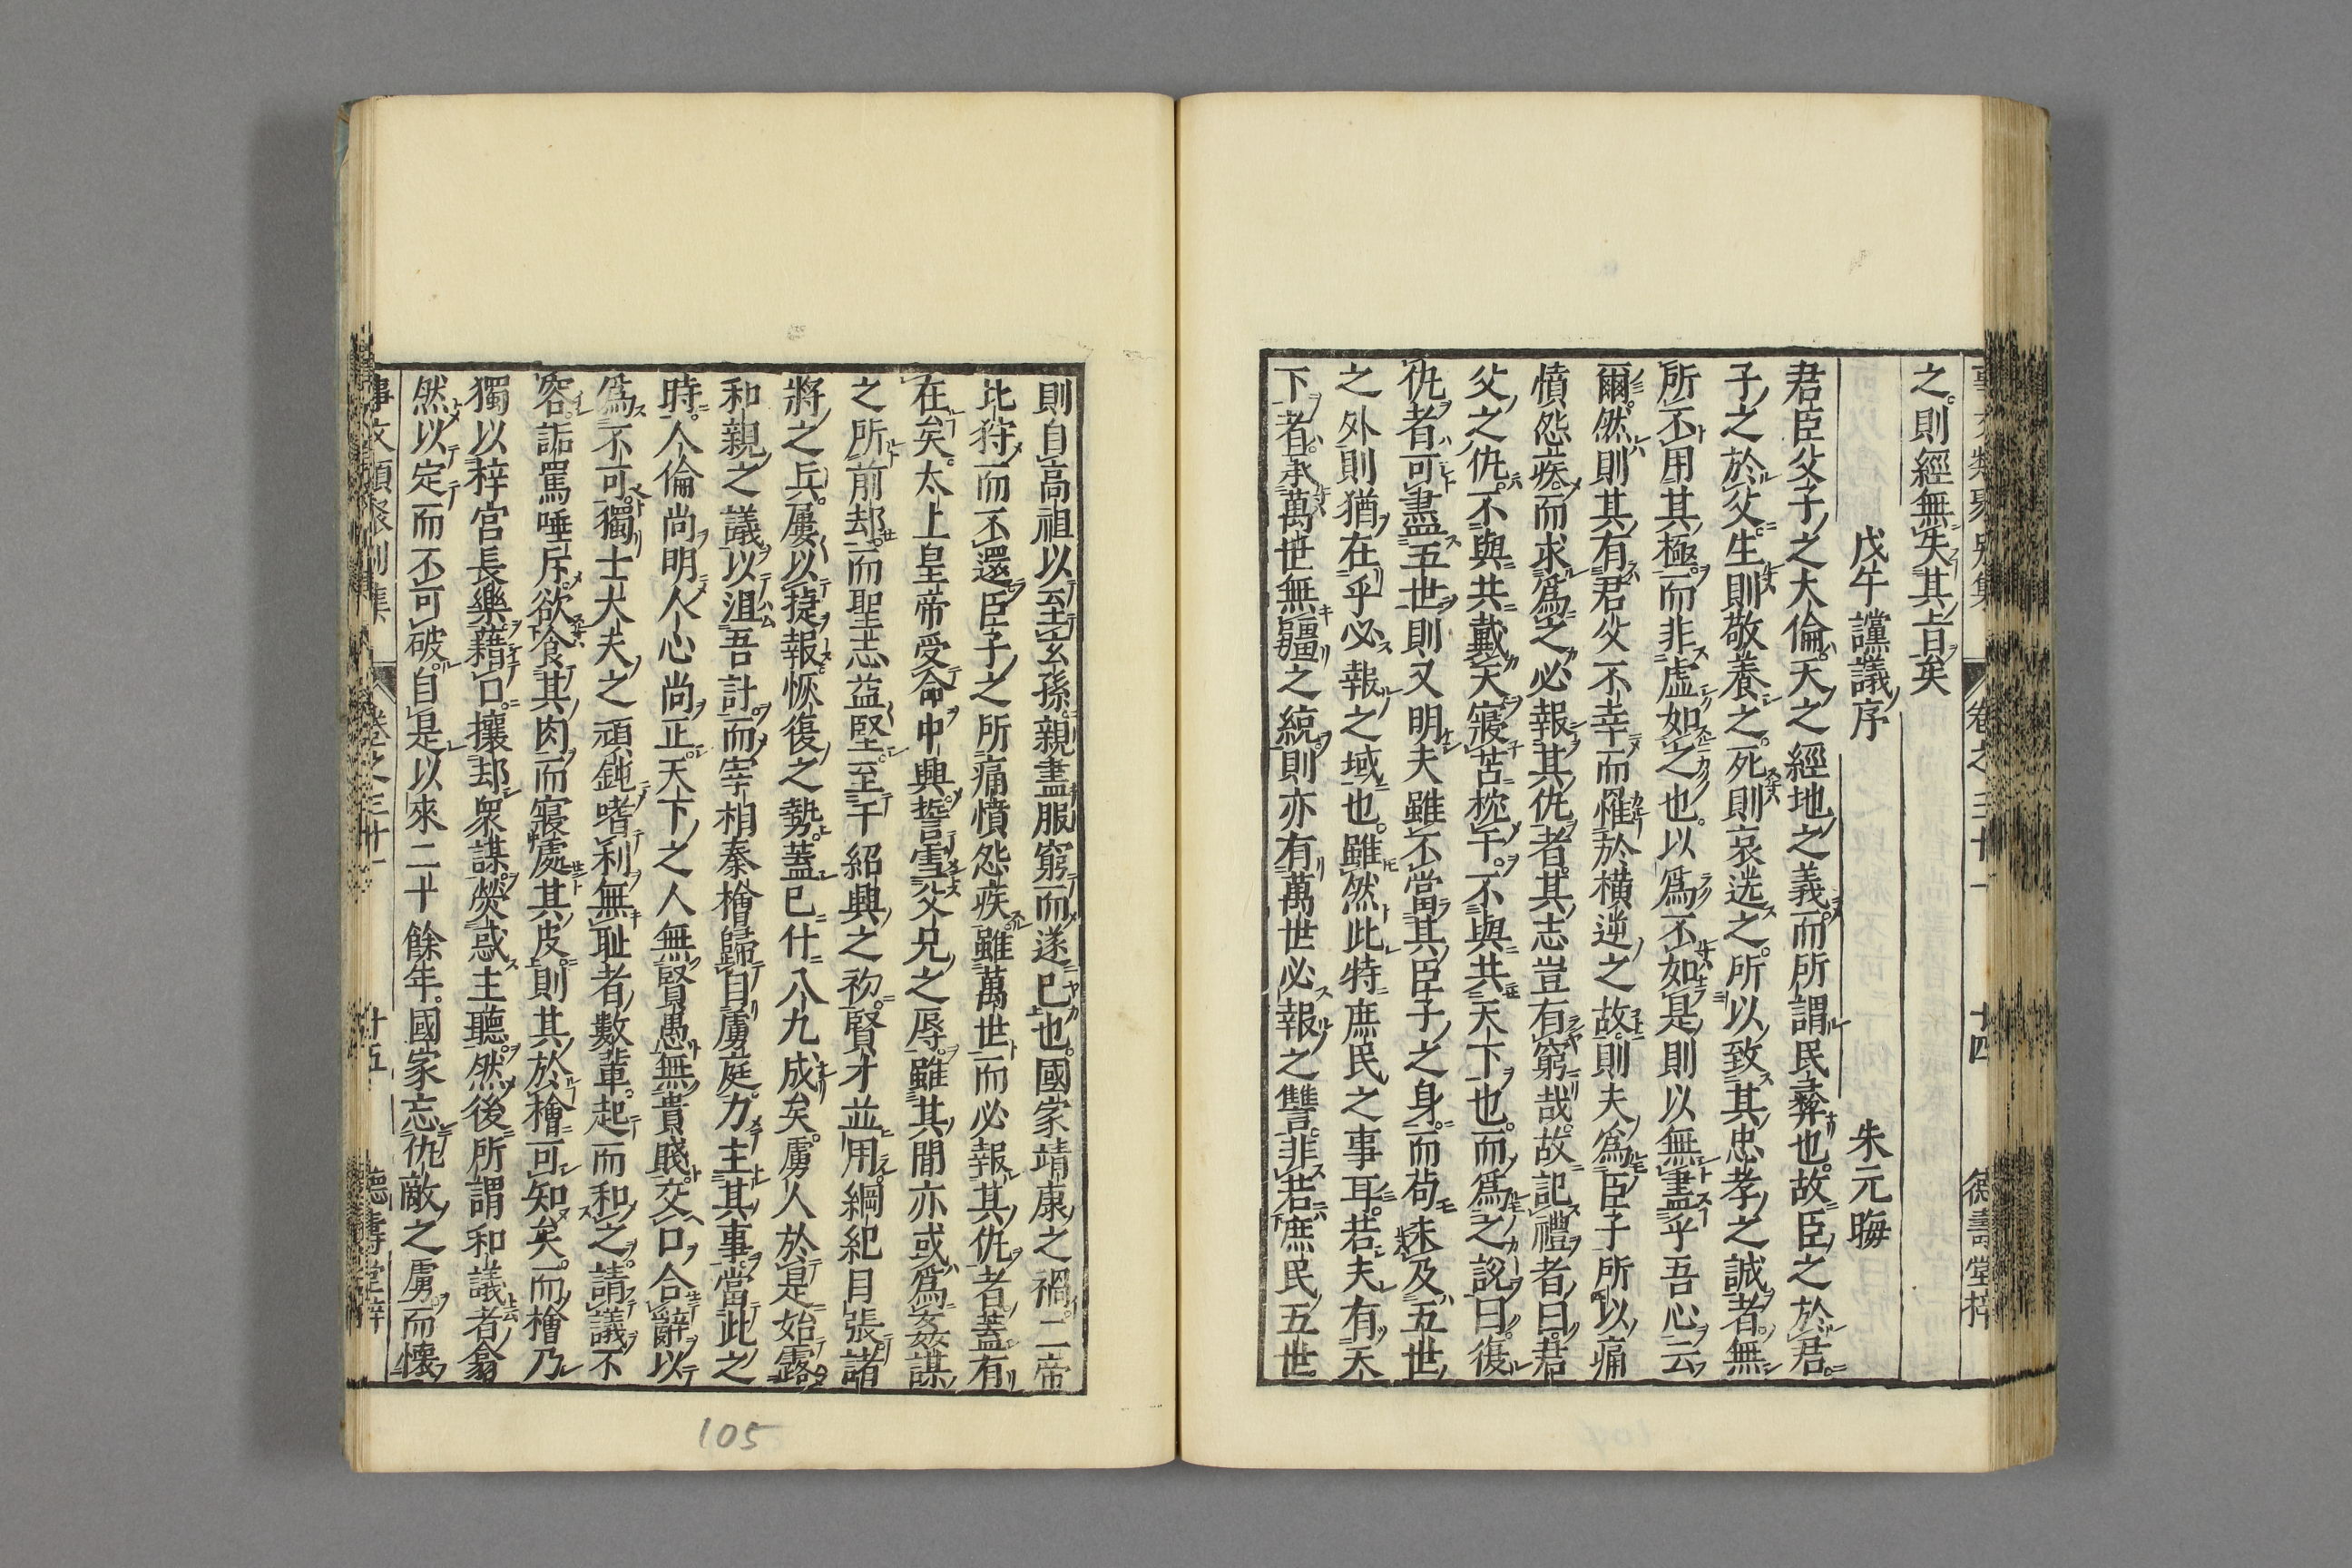 之則經無失其旨矣
戊午讜議序　朱元晦
君臣父子之大倫天之經地之義而所謂民彝也故臣之於君
子之於父生則敬養之死則哀送之所以致其忠孝之誠者無
所不用其極而非虛如之也以爲不如是則以無盡乎吾心云
爾然則其有君父不幸而罹於橫逆之故則夫爲臣子所以痛
憤怨疾而求爲之必報其仇者其志豈有窮哉故記禮者曰君
父之仇不與共戴天寢苫枕干不與共天下也而爲之說曰復
仇者可盡五世則又明夫雖不當其臣子之身而苟未及五世
之外則猶在乎必報之域也雖然此特庶民之事耳若夫有天
下者承萬世無疆之統則亦有萬世必報之讐非若庶民五世
卷之三十一　十四　德壽堂梓
則自高祖以至玄孫親盡服窮而遂已也國家靖康之禍二帝
北狩而不還臣子之所痛憤怨疾雖萬世而必報其仇者蓋有
在矣太上皇帝受命中興誓雪父兄之辱雖其間亦或爲姦謀
之所前却而聖志益堅至于紹興之初賢才並用綱紀目張諸
將之兵屢以捷報恢復之勢蓋已什八九成矣虜人於是始露
和親之議以沮吾計而宰相秦檜歸自虜庭力主其事當此之
時人倫尚明人心尚正天下之人無賢愚無貴賤交口合辭以
爲不可獨士大夫之頑鈍嗜利無耻者數輩起而和之請議不
容詬罵唾斥欲食其肉而寢處其皮則其於檜可知矣而檜乃
獨以梓宮長樂藉口攘却衆謀熒惑主聽然後所謂和議者翕
然以定而不可破自是以來二十餘年國家忘仇敵之虜而懷
事文類聚別集　卷之三十一　十五　德壽堂梓
105